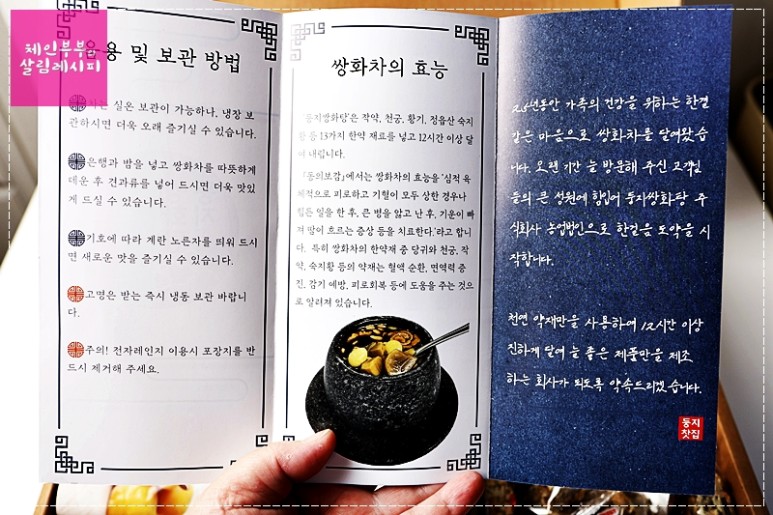 체인부부의
살림레시피
음용 및 보관 방법
차는 실온 보관이 가능하나, 냉장 보
관하시면 더욱 오래 즐기실 수 있습니다.
은행과 밤을 넣고 쌍화차를 따뜻하게
데운 후 견과류를 넣어 드시면 더욱 맛있
게 드실 수 있습니다.
기호에 따라 계란 노른자를 띄워 드시
면 새로운 맛을 즐기실 수 있습니다.
고명은 받는 즉시 냉동 보관 바랍니
다.
주의! 전자레인지 이용시 포장지를 반
드시 제거해 주세요.
쌍화차의 효능
'둥지쌍화탕'은 작약, 천궁, 황기, 정읍산 숙지
황 등 13가지 한약 재료를 넣고 12시간 이상 달
여 내립니다.
『동의보감』에서는 쌍화차의 효능을 '심적 육
체적으로 피로하고 기혈이 모두 상한 경우나
힘든 일을 한 후, 큰 병을 앓고 난 후, 기운이 빠
져 땀이 흐르는 증상 등을 치료한다.'라고 합니
다. 특히 쌍화차의 한약재 중 당귀와 천궁, 작
약, 숙지황 등의 약재는 혈액 순환, 면역력 증
진, 감기 예방, 피로회복 등에 도움을 주는 것으
로 알려져 있습니다.
25년동안 가족의 건강을 위하는 한결
같은 마음으로 쌍화차를 달여왔습
니다. 오랜 기간 늘 방문해 주신 고객님
들의 큰 성원에 힘입어 둥지쌍화탕 주
식회사 농업법인으로 한걸음 도약을 시
작합니다.
천연 약재만을 사용하여 12시간 이상
진하게 달여 늘 좋은 제품만을 제조
하는 회사가 되도록 약속드리겠습니다.
둥지
찻집